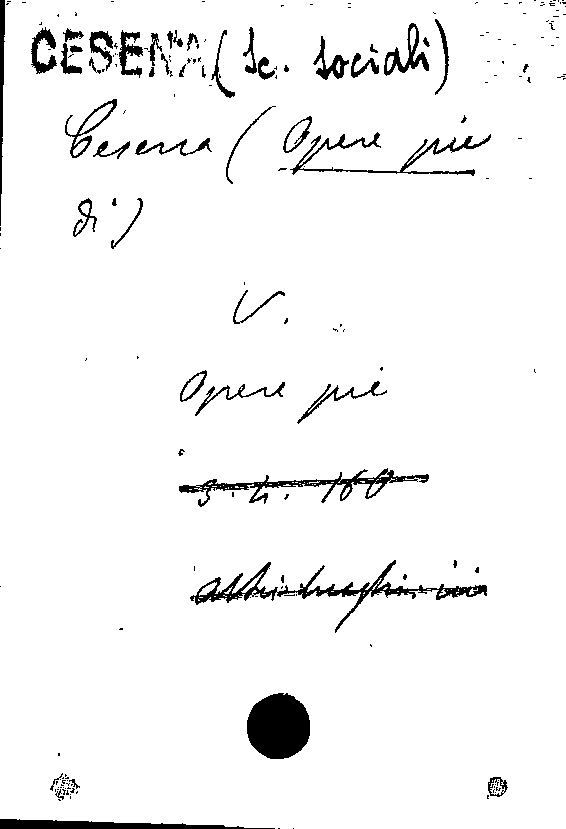 CESENA (Sc. Sociali)
Cesena (Opere pie
di)
V.
Opere pie
3. 4. 160
altri luoghi